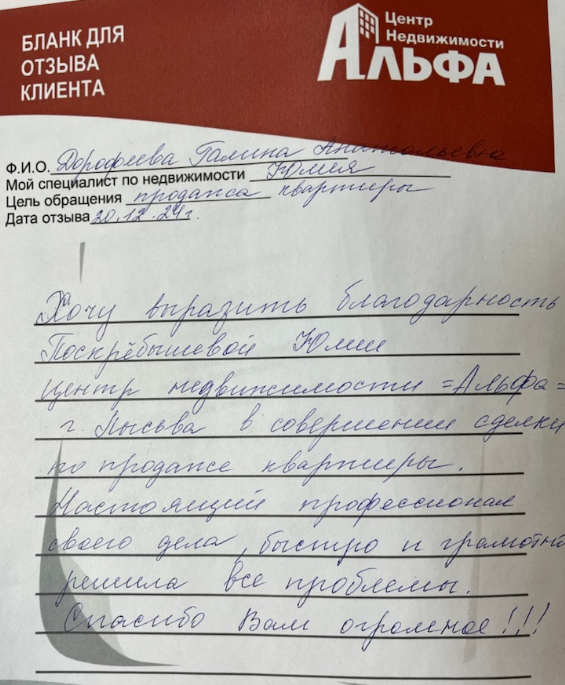 БЛАНК ДЛЯ
ОТЗЫВА
КЛИЕНТА
Центр
Недвижимости
АЛЬФА
Ф.И.О. Дорофеева Галина Анатольевна
Мой специалист по недвижимости Юлия
Цель обращения продажа квартиры
Дата отзыва 20.12.24г.
Хочу выразить благодарность
Поскрёбышевой Юлии
центр недвижимости =Альфа=
г. Лысьва в совершении сделки
по продаже квартиры.
Настоящий профессионал
своего дела, быстро и грамотно
решила все проблемы.
Спасибо Вам огромное!!!